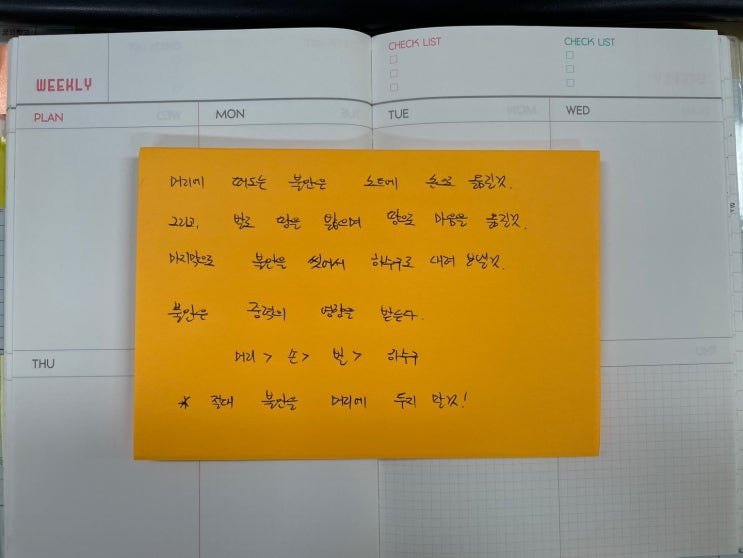 WEEKLY
CHECK LIST
CHECK LIST
PLAN
MON
TUE
WED
머리에 떠도는 불안은 노트에 손으로 옮길것.
그리고, 발로 땅을 밟으며 땅으로 마음을 옮길것.
마지막으로 불안을 씻어서 하수구로 내려 보낼것.
불안은 중력의 영향을 받는다.
머리 > 손 > 발 > 하수구
* 절대 불안을 머리에 두지 말것!
THU